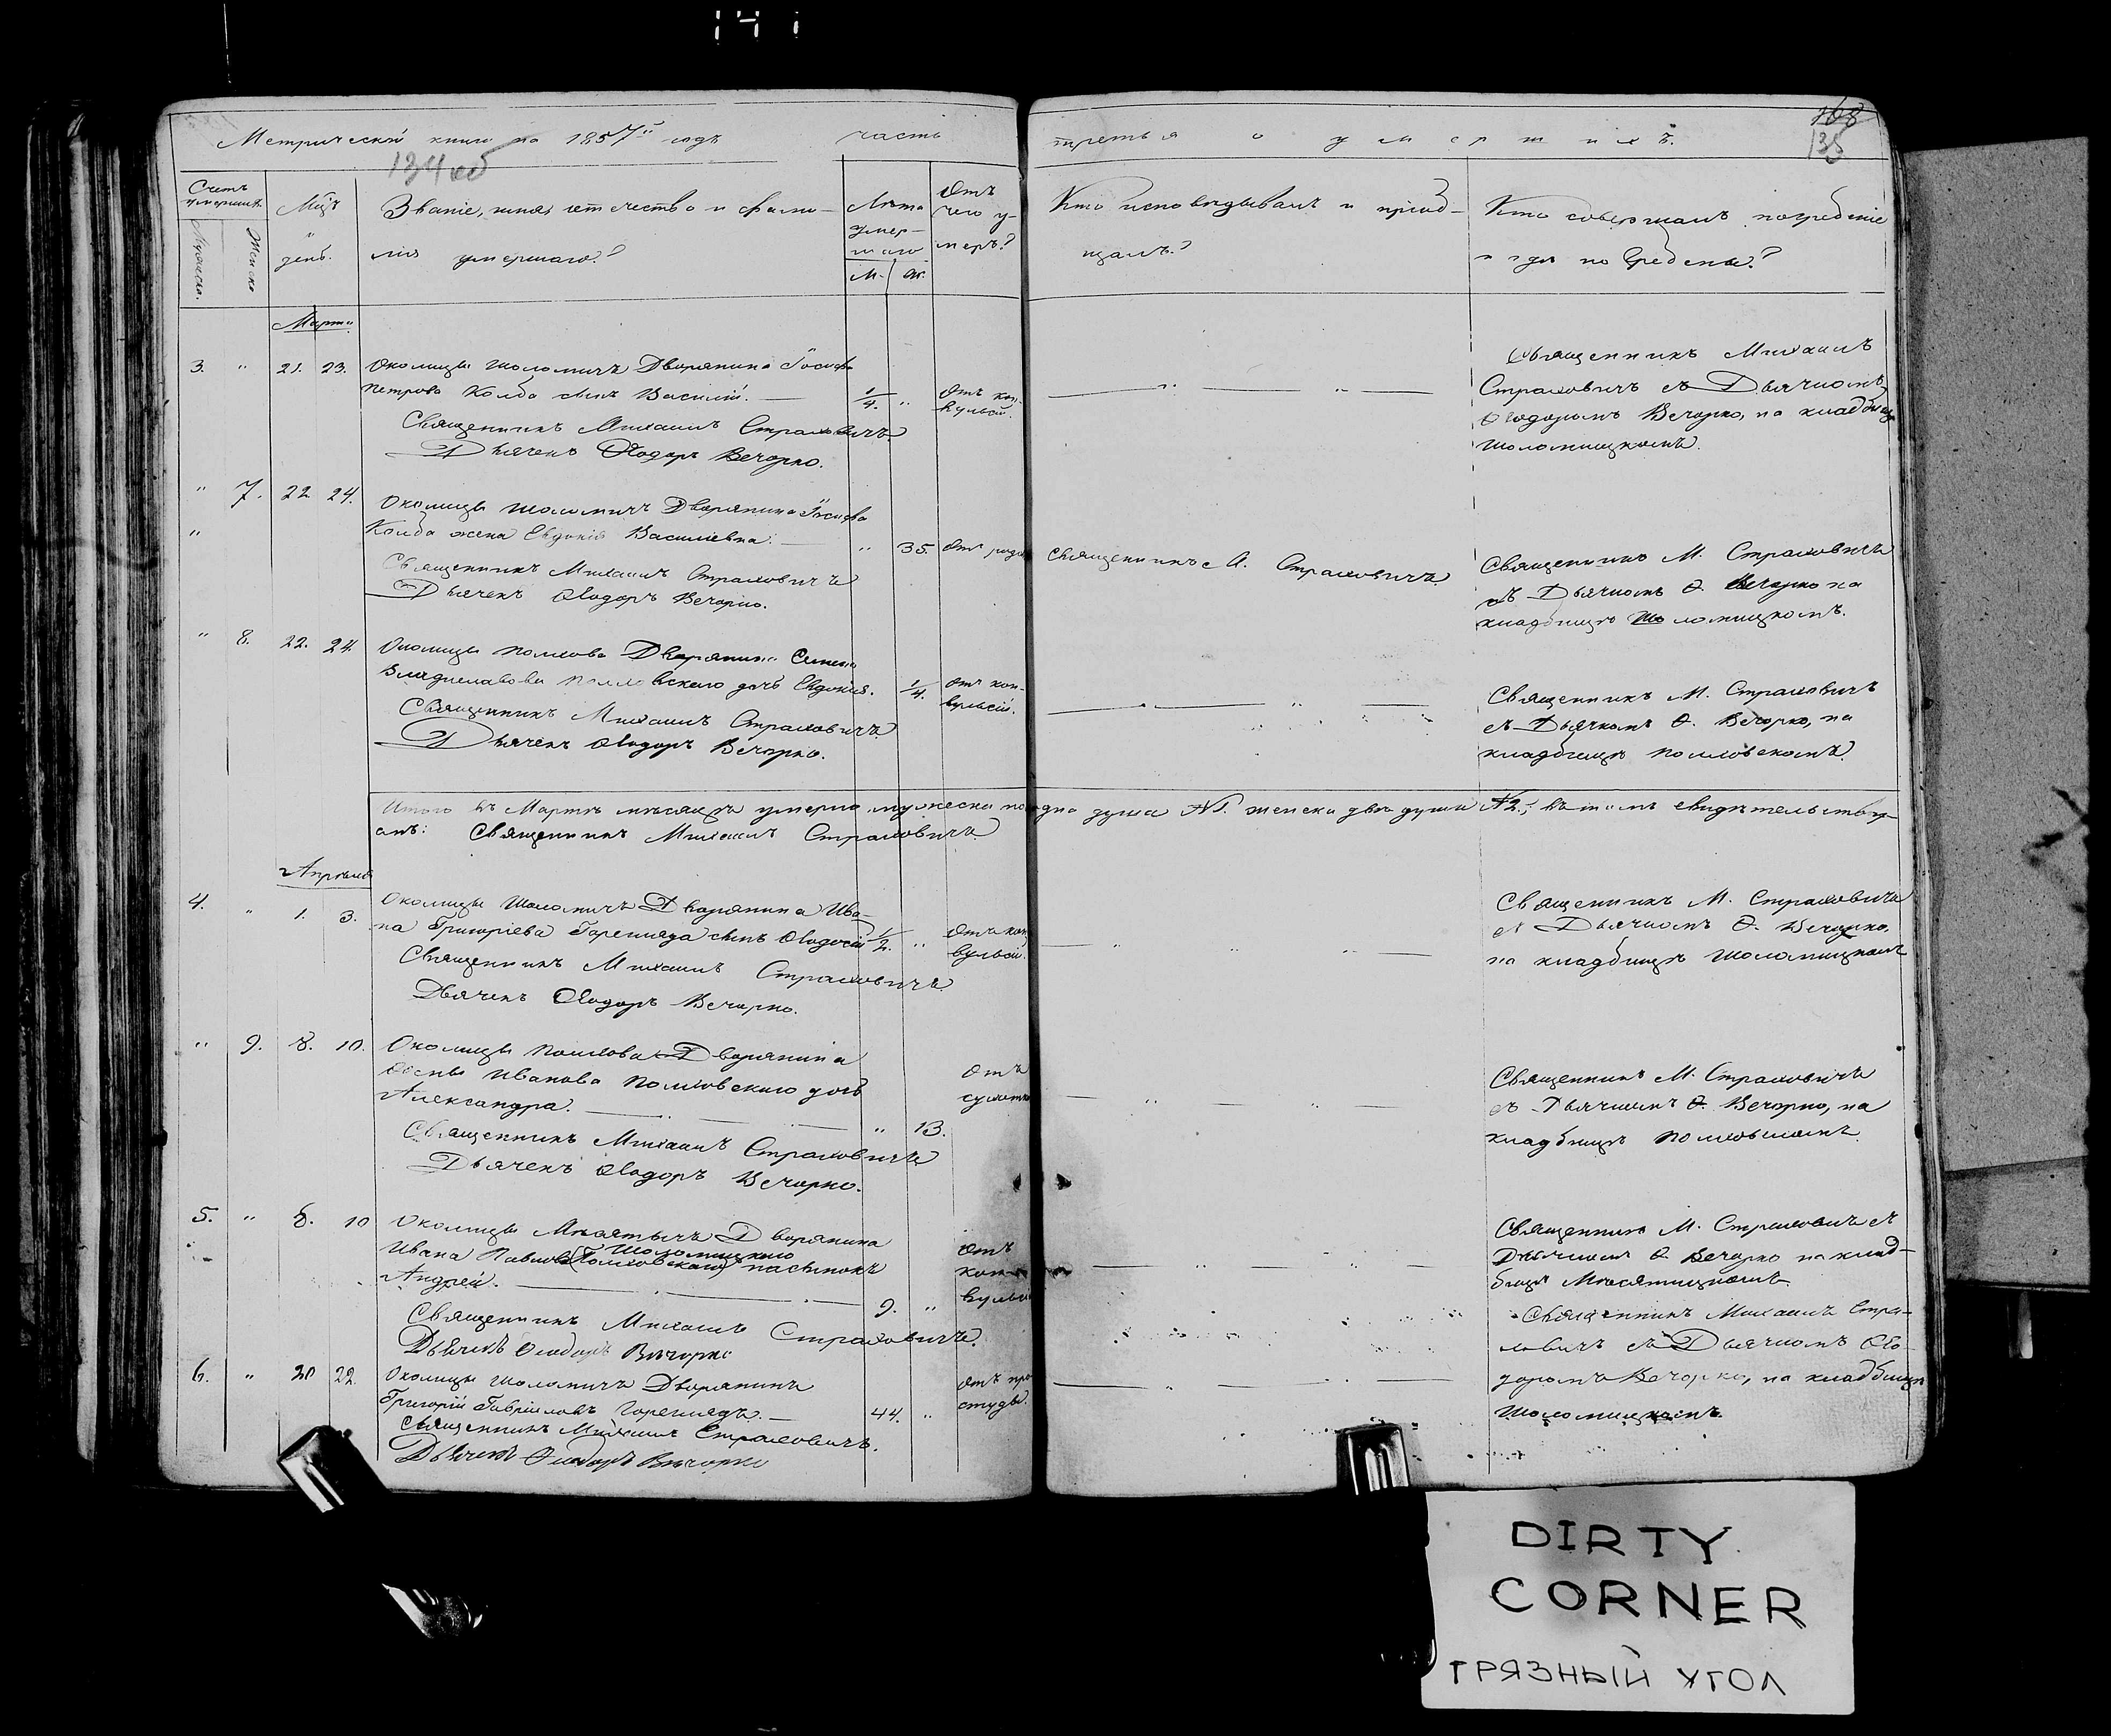 141
Метрической книги на 1857й годъ часть третья о умершихъ.
134 об
168
135
Счетъ умершихъ
Мужеска.
Женска
Мцъ и день.
Званіе, имя, отчество и фами-
лія умершаго?
Лѣта умер-
шаго
М. Ж.
Отъ чего у-
меръ?
Кто исповѣдывалъ и пріоб-
щалъ?
Кто совершалъ погребеніе
и гдѣ погребены?
Марта
3. " 21. 23. Околицы Шоломичъ Дворянина Іосифа
Петрова Колба сынъ Василій. — 1/4. " Отъ кон-
вульсій.
Священникъ Михаилъ Страховичъ
Дьячекъ Ѳеодоръ Вечорко.
Священникъ Михаилъ
Страховичъ съ Дьячкомъ
Ѳеодоромъ Вечорко, на кладбищѣ
Шоломицкомъ.
" 7. 22 24. Околицы Шоломичъ Дворянина Іосифа
Колба жена Евдокія Василіевна. — " 35. Отъ родов
Священникъ Михаилъ Страховичъ
Дьячекъ Ѳеодоръ Вечорко.
Священникъ М. Страховичъ
Священникъ М. Страховичъ
съ Дьячкомъ Ѳ. Вечорко на
кладбищѣ Шоломицкомъ.
" 8. 22. 24. Околицы Полхова Дворянина Семена
Владиславова Полховскаго дочь Евдокія. 1/4. Отъ кон-
вульсій.
Священникъ Михаилъ Страховичъ
Дьячекъ Ѳеодоръ Вечорко.
Священникъ М. Страховичъ
съ Дьячкомъ Ѳ. Вечорко, на
кладбищѣ Полховскомъ.
Итого въ Мартѣ мѣсяцѣ умерло мужеска пола одна душа №1. женска двѣ души №2.; въ томъ свидѣтельству-
емъ: Священникъ Михаилъ Страховичъ
Апрѣль
4. " 1. 3. Околицы Шоломичъ Дворянина Ива-
на Григоріева Горегляда сынъ Ѳеодосій 1/2. " Отъ кон
вульсій.
Священникъ Михаилъ Страховичъ
Дьячекъ Ѳеодоръ Вечорко.
Священникъ М. Страховичъ
съ Дьячкомъ Ѳ. Вечорко,
на кладбищѣ Шоломицкомъ
" 9. 8. 10. Околицы Полхова Дворянина
Осипа Иванова Полховскаго дочь
Александра. — " 13. Отъ
сухотки
Священникъ Михаилъ Страховичъ
Дьячекъ Ѳеодоръ Вечорко.
Священникъ М. Страховичъ
съ Дьячкомъ Ѳ. Вечорко, на
кладбищѣ Полховскомъ.
5. " 8. 10 Околицы Дворянина
Шоломицкаго
Ивана Павлова (Полховскаго) пасынокъ
Андрей. — 9. " Отъ
кон-
вульсі
Священникъ Михаилъ Страховичъ.
Дьячекъ Ѳеодоръ Вечорко
Священникъ М. Страховичъ съ
Дьячкомъ Ѳ. Вечорко на клад-
бищѣ
6. " 20 22. Околицы Шоломичъ Дворянинъ
Григорій Гавріиловъ Горегляд. — 44. " Отъ про
студы.
Священникъ Михаилъ Страховичъ.
Дьячекъ Ѳеодоръ Вечорко
Священникъ Михаилъ Стра-
ховичъ съ Дьячкомъ Ѳео-
доромъ Вечорко, на кладбищѣ
Шоломицкомъ.
DIRTY
CORNER
ГРЯЗНЫЙ УГОЛ